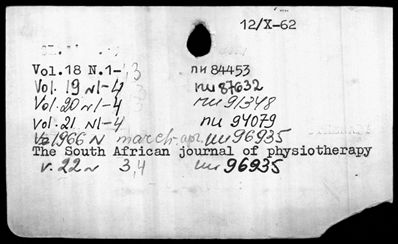 12/X-62
Vol.18 N.1-4,3 пи 84453
Vol. 19 N1-4 пи 87632
Vol. 20 N1-4 пи 91348
Vol. 21 N1-4 пи 94079
1966 N march-apr. пи 96935
The South African journal of physiotherapy
v. 22 N 3,4 пи 96935